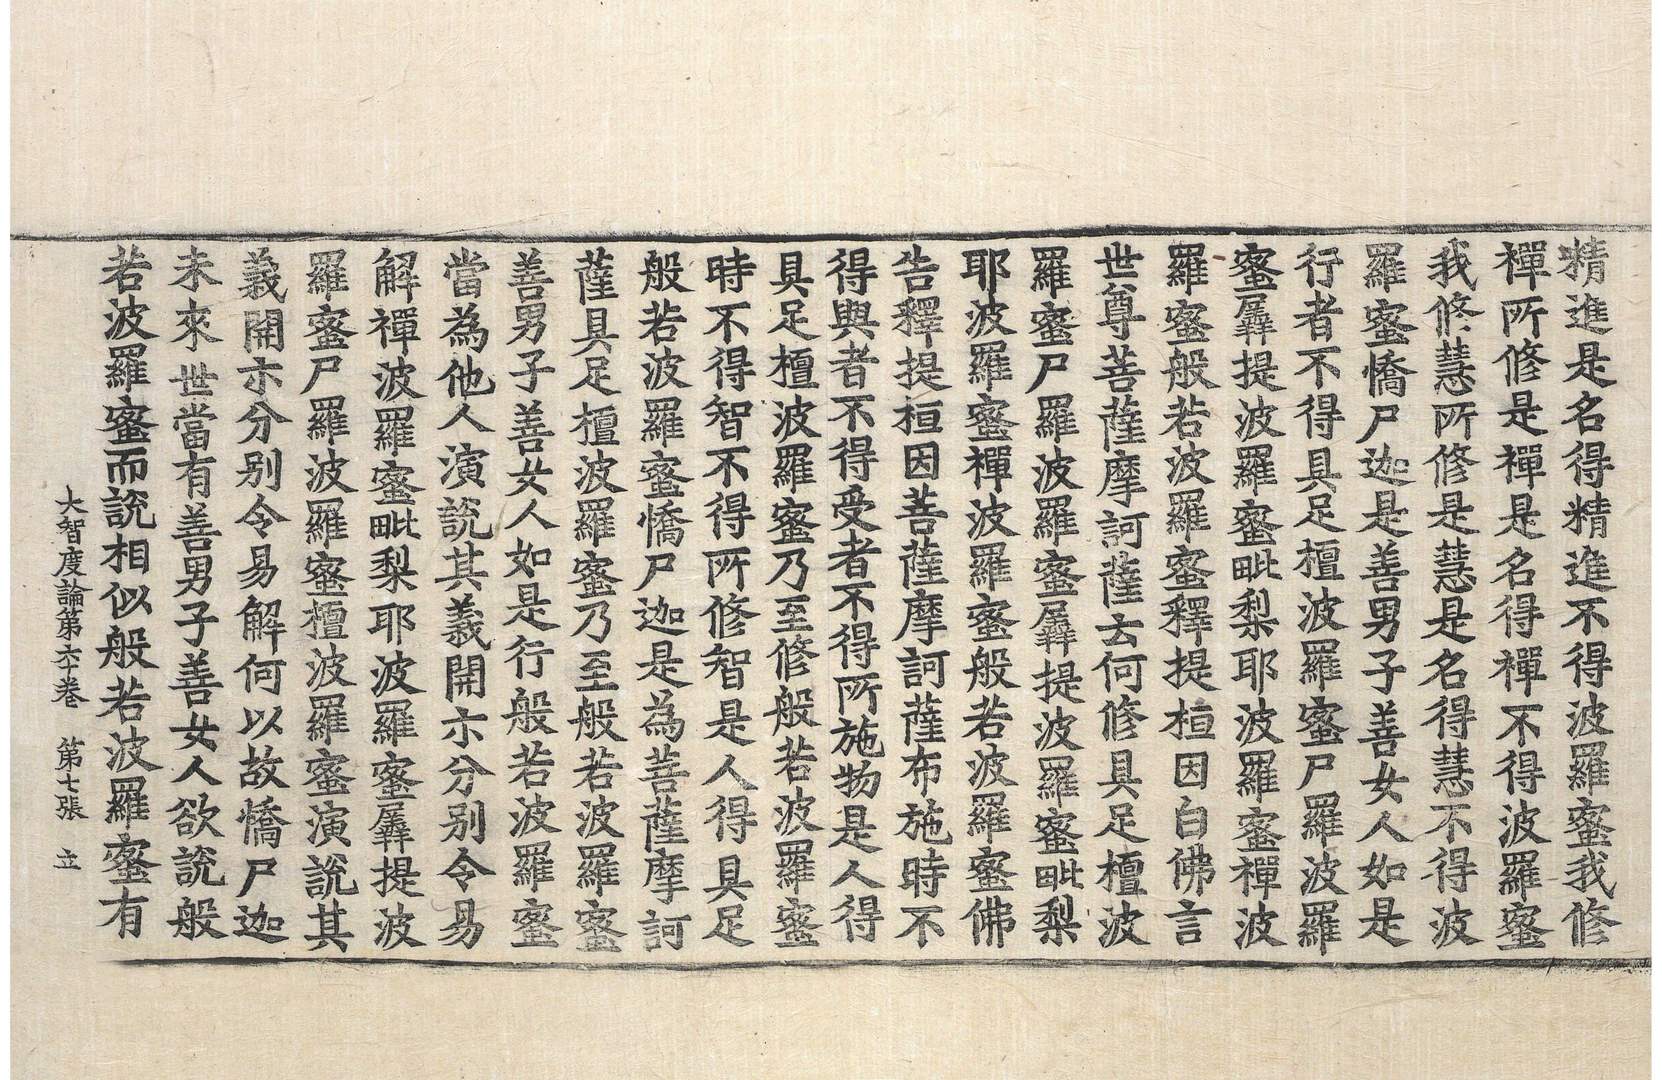 精進是名得精進不得波羅蜜我修
禪所修是禪是名得禪不得波羅蜜
我修慧所修是慧是名得慧不得波
羅蜜憍尸迦是善男子善女人如是
行者不得具足檀波羅蜜尸羅波羅
蜜羼提波羅蜜毗梨耶波羅蜜禪波
羅蜜般若波羅蜜釋提桓因白佛言
世尊菩薩摩訶薩云何修具足檀波
羅蜜尸羅波羅蜜羼提波羅蜜毗梨
耶波羅蜜禪波羅蜜般若波羅蜜佛
告釋提桓因菩薩摩訶薩布施時不
得與者不得受者不得所施物是人得
具足檀波羅蜜乃至修般若波羅蜜
時不得智不得所修智是人得具足
般若波羅蜜憍尸迦是為菩薩摩訶
薩具足檀波羅蜜乃至般若波羅蜜
善男子善女人如是行般若波羅蜜
當為他人演說其義開示分別令易
解禪波羅蜜毗梨耶波羅蜜羼提波
羅蜜尸羅波羅蜜檀波羅蜜演說其
義開示分別令易解何以故憍尸迦
未來世當有善男子善女人欲說般
若波羅蜜而說相似般若波羅蜜有
大智度論第六十卷 第七張 立